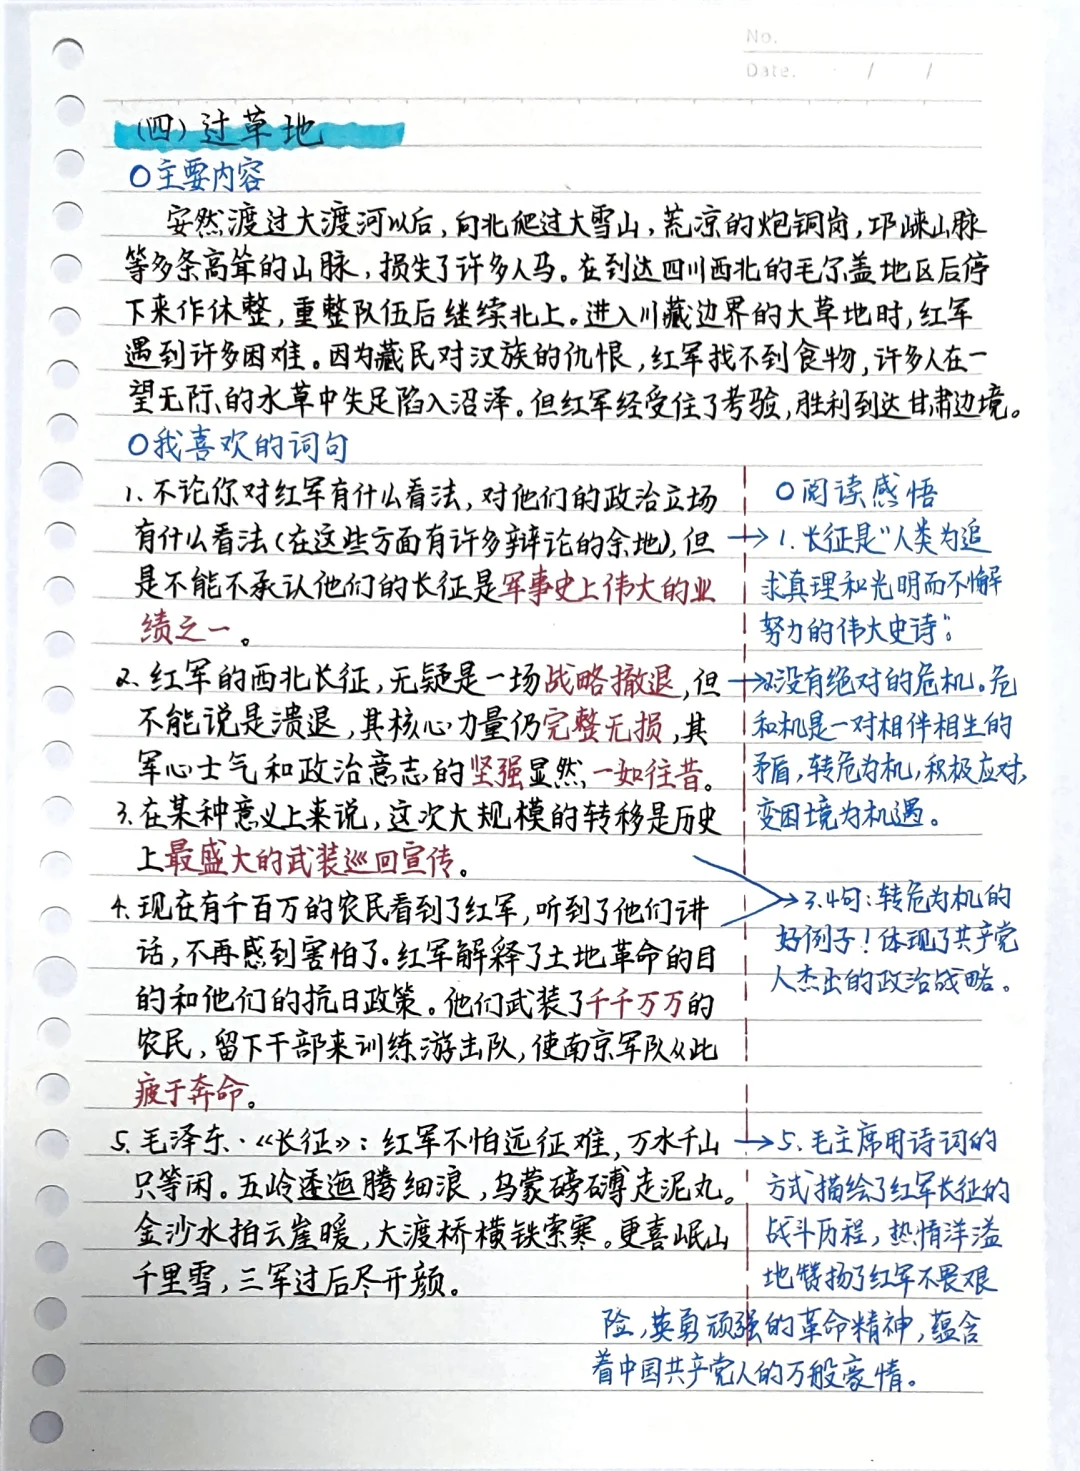 No.
Date. / /
(四)过草地
○主要内容
安然渡过大渡河以后,向北爬过大雪山,荒凉的炮铜岗,邛崃山脉
等多条高耸的山脉,损失了许多人马。在到达四川西北的毛尔盖地区后停
下来作休整,重整队伍后继续北上。进入川藏边界的大草地时,红军
遇到许多困难。因为藏民对汉族的仇恨,红军找不到食物,许多人在一
望无际的水草中失足陷入沼泽。但红军经受住了考验,胜利到达甘肃边境。
○我喜欢的词句
1.不论你对红军有什么看法,对他们的政治立场
有什么看法(在这些方面有许多辩论的余地),但
是不能不承认他们的长征是军事史上伟大的业
绩之一。
2.红军的西北长征,无疑是一场战略撤退,但
不能说是溃退,其核心力量仍完整无损,其
军心士气和政治意志的坚强显然一如往昔。
3.在某种意义上来说,这次大规模的转移是历史
上最盛大的武装巡回宣传。
4.现在有千百万的农民看到了红军,听到了他们讲
话,不再感到害怕了。红军解释了土地革命的目
的和他们的抗日政策。他们武装了千千万万的
农民,留下干部来训练游击队,使南京军队从此
疲于奔命。
5.毛泽东·《长征》:红军不怕远征难,万水千山
只等闲。五岭逶迤腾细浪,乌蒙磅礴走泥丸。
金沙水拍云崖暖,大渡桥横铁索寒。更喜岷山
千里雪,三军过后尽开颜。
○阅读感悟
→1.长征是"人类为追
求真理和光明而不懈
努力的伟大史诗"。
→2.没有绝对的危机。危
和机是一对相伴相生的
矛盾,转危为机,积极应对,
变困境为机遇。
→3.4句:转危为机的
好例子!体现了共产党
人杰出的政治战略。
→5.毛主席用诗词的
方式描绘了红军长征的
战斗历程,热情洋溢
地赞扬了红军不畏艰
险,英勇顽强的革命精神,蕴含
着中国共产党人的万般豪情。